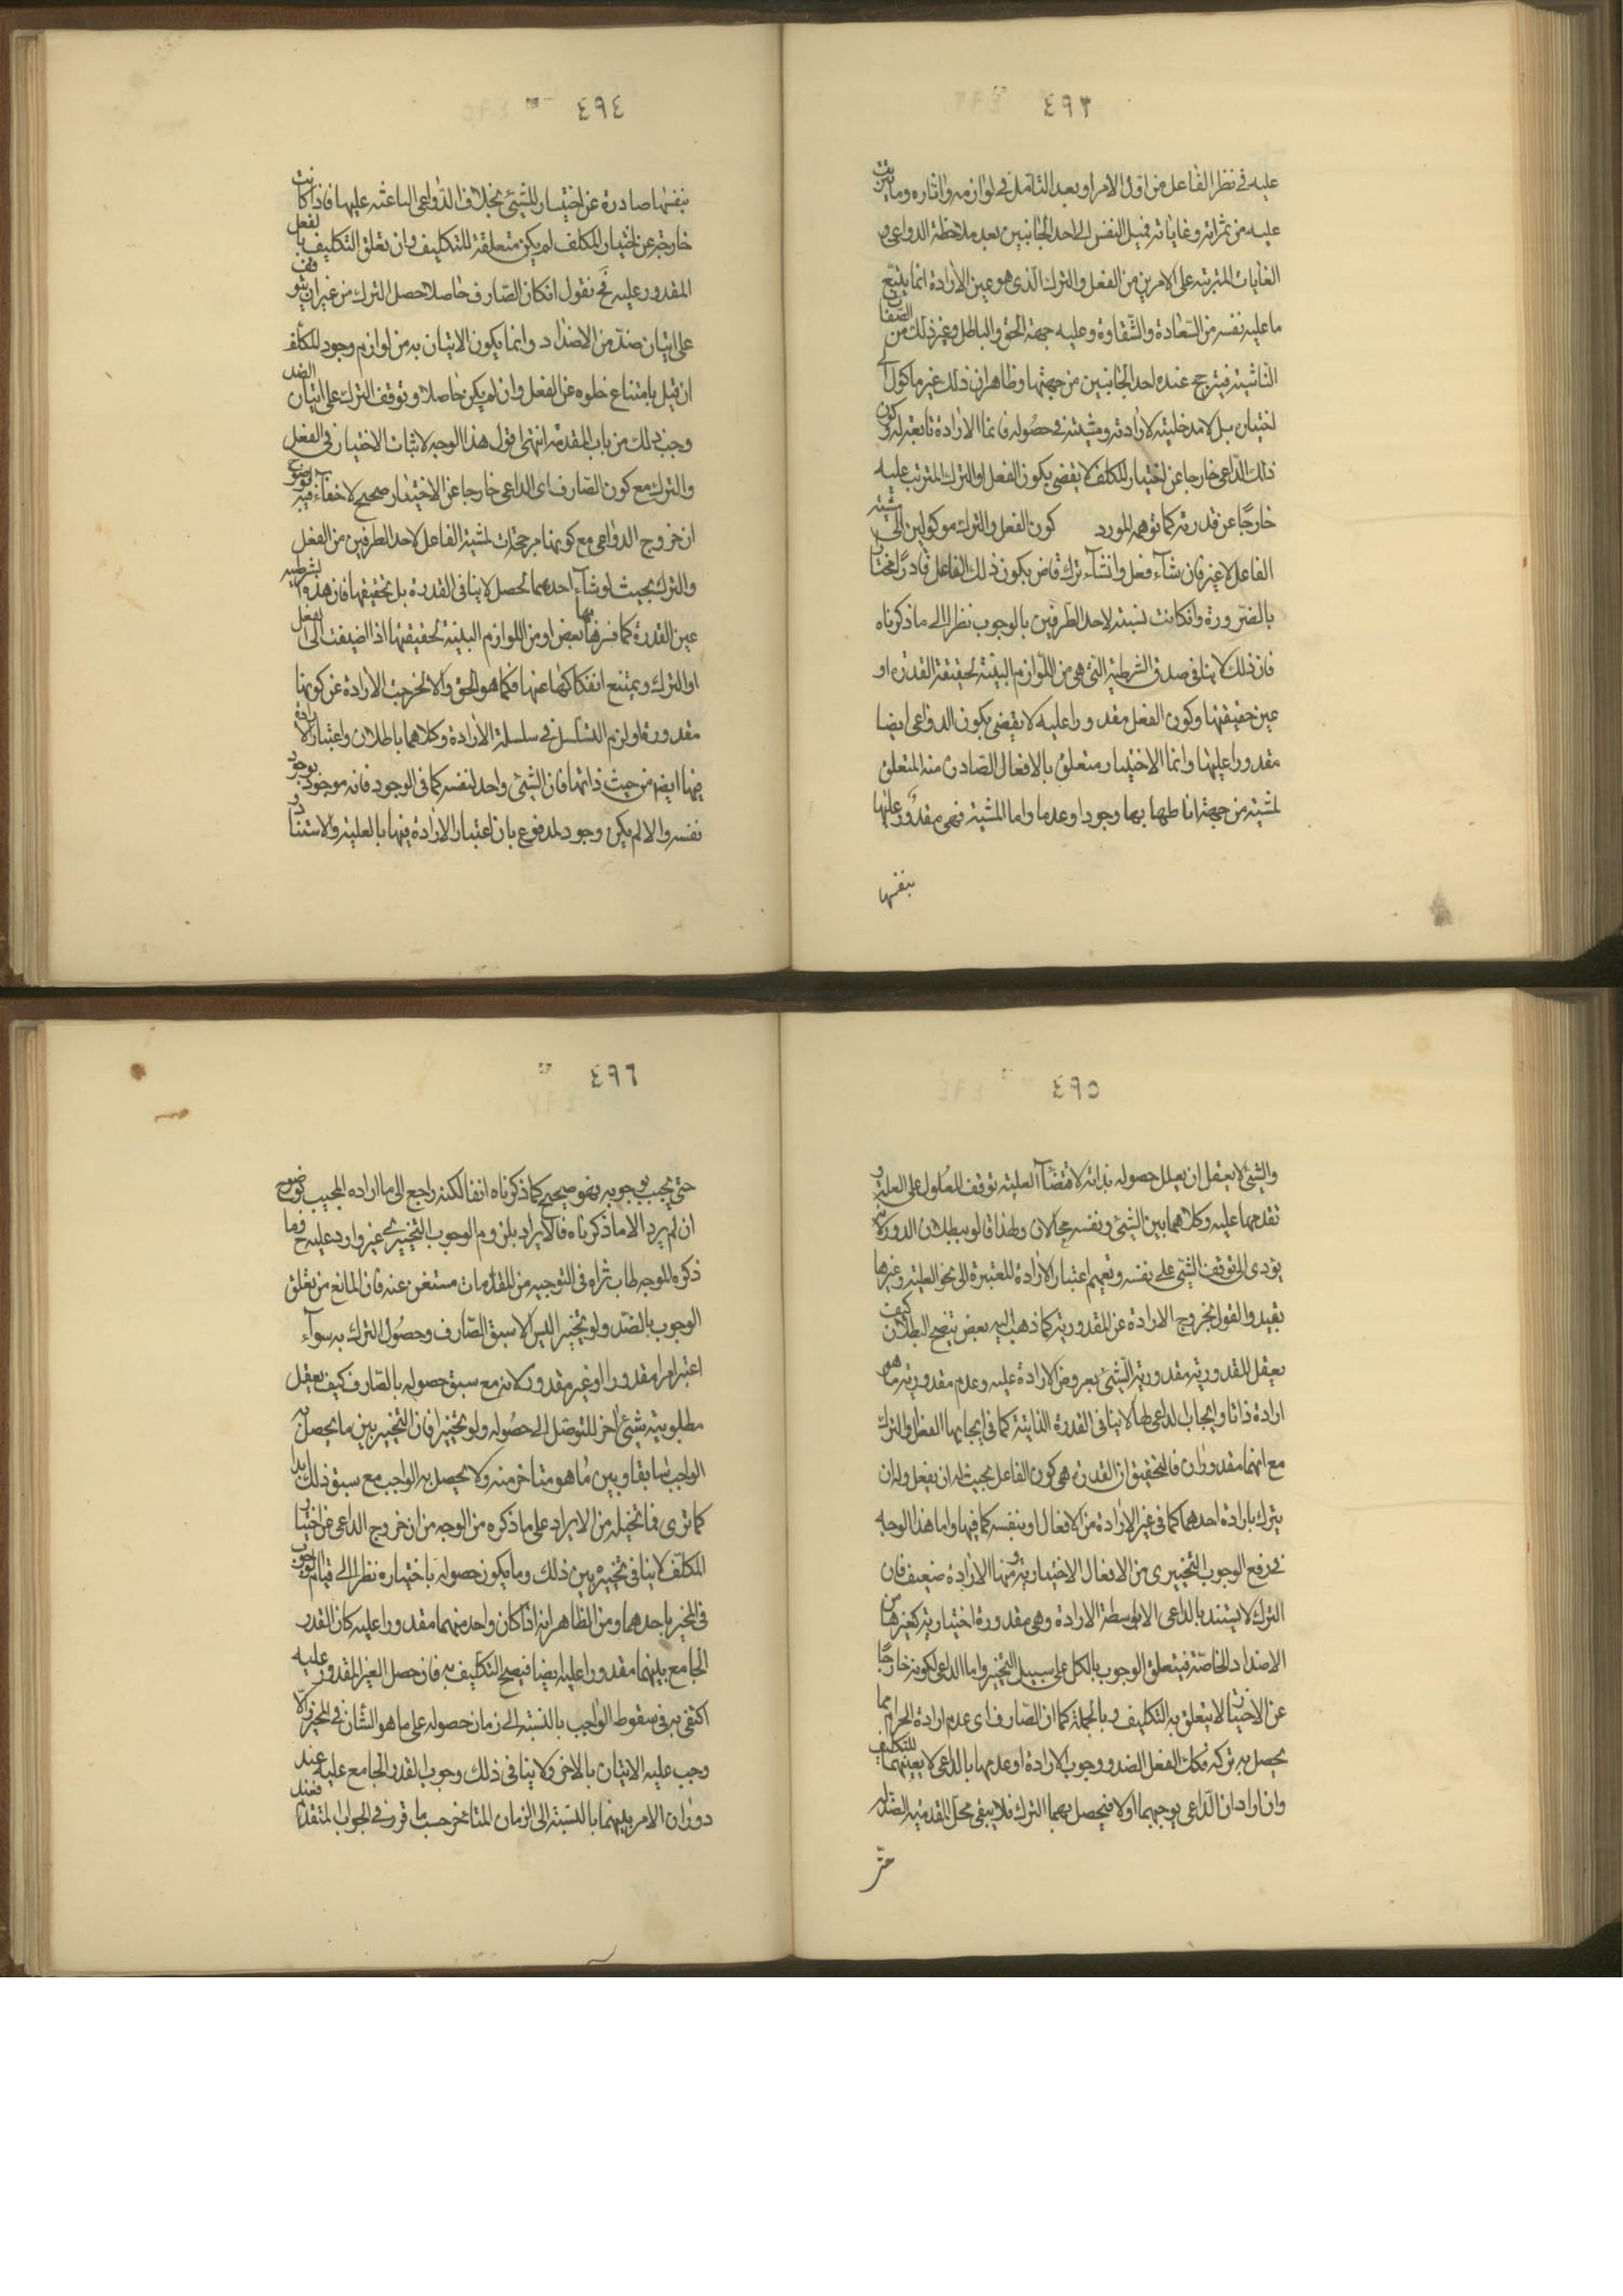 ٤٩٣
عليه في نظر الفاعل من اول الامر او بعد التامل في لوازمه واثاره وما يترتب
عليه من ثمراته وغاياته فميل النفس الى احد الجانبين بعد ملاحظة الدواعي و
الغايات المترتبة على الامرين من الفعل والترك الذي هو عين الارادة انما يتبع
ما عليه نفسه من السعادة والشقاوة وعليه جهة الحق والباطل وغير ذلك من الصفات
الناشية فيترجح عنده احد الجانبين من جهتها وظاهر ان ذلك غير ماكول الى
اختيار بل لا مدخلية لارادته ومشيته في حصوله فانما الارادة تابعة له وكون
ذلك الداعي خارجا عن اختيار المكلف لا يقضي بكون الفعل او الترك المترتب عليه
خارجًا عن قدرته كما توهمه المورد كون الفعل والترك موكولين الى مشيته
الفاعل لا غير فان شاء فعل وان شاء ترك قاض بكون ذلك الفاعل قادرًا مختارا
بالضرورة وان كانت نسبته لاحد الطرفين بالوجوب نظرا الى ما ذكرناه
فان ذلك لا ينافي صدق الشرطية التي هي من اللوازم البينة لحقيقة القدرة او
عين حقيقتها وكون الفعل مقدورا عليه لا يقضي بكون الدواعي ايضا
مقدورا عليها وانما الاختيار متعلق بالافعال الصادرة منه المتعلق
لمشيته من جهة اناطهما بها وجودا وعدما واما المشية فهي مقدور عليها
بنفسها
٤٩٤
بنفسها صادرة عن اختيار للشيئ بخلاف الدواعي الباعثه عليها فاذا كانت
خارجة عن اختيار المكلف لم يكن متعلقة للتكليف وان تعلق التكليف بالفعل
المقدور عليه فح نقول ان كان الصارف حاصلا حصل الترك من غير ان يتوقف
على اتيان ضد من الاضداد وانما يكون الاتيان به من لوازم وجود المكلف
ان قيل بامتناع خلوه عن الفعل وان لم يكن حاصلا وتوقف الترك على اتيان الضد
وجب ذلك من باب المقدمة انتهى اقول هذا الوجه لاثبات الاختيار في الفعل
والترك مع كون الصارف اي الداعي خارجا عن الاختيار صحيح لا خفاء فيه لوضوح
ان خروج الدواعي مع كونها مرجحات لمشية الفاعل لاحد الطرفين من الفعل
والترك بحيث لو شاء احدهما تحصل لا ينافي القدرة بل تحقيقها فان هذه الشرطيه
عين القدرة كما فسرها بها بعض او من اللوازم البينة لحقيقتها اذا اضيفت الى الفعل
او الترك ويمتنع انفكاكها عنها فكما هو الحق والا لخرجت الارادة عن كونها
مقدورة او لزم التسلسل في سلسلة الارادة وكلاهما باطلان واعتبار الارادة
فيها ايضا من حيث ذاتها فان الشيئ واحد لنفسه كما في الوجود فانه موجود بوجود
نفسه والا لم يكن وجود مدفوع بان اعتبار الارادة فيها بالعلية والاستناد
٤٩٥
والشيئ لا يعقل ان يعلل حصوله بذاته لاقتضاء العلية توقف المعلول على العلة و
تقدمها عليه وكلاهما بين الشيئ ونفسه محالان ولهذا قالوا ببطلان الدور لانه
يؤدي الى توقف الشيئ على نفسه وتعميم اعتبار الارادة المعتبرة الى نحو العلية وغيرها
بعيد والقول بخروج الارادة عن المقدورية كما ذهب اليه بعض يتضح البطلان كيف
يعقل المقدورية مقدورية الشيئ بعروض الارادة عليه وعدم مقدورية ما هو
ارادة ذاتا وايجاب الداعي لها لا ينافي القدرة الذاتية كما في ايجابها الفعل والترك
مع انهما مقدوران فالتحقيق ان القدرة هي كون الفاعل بحيث له ان يفعل وله ان
يترك بارادة احدهما كما في غير الارادة من الافعال او بنفسه كما فيها واما هذا الوجه
في رفع الوجوب التخييري من الافعال الاختيارية ومنها الارادة ضعيف فان
الترك لا يستند بالداعي الا بواسطة الارادة وهي مقدورة اختيارية كغيرها من
الاضداد الخاصة فيتعلق الوجوب بالكل على سبيل التخيير واما الداعي لكونه خارجًا
عن الاختيار لا يتعلق به التكليف وبالجملة كما ان الصارف اي عدم ارادة الحرام مما
يحصل به تركه فكك الفعل الضد ووجوب الارادة او عدمها بالداعي لا يعينهما للتكليف
وان اراد ان الداعي يوجبهما اولا فيحصل بهما الترك فلا يبقى محل المقدمية الضد له
حتى
٤٩٦
حتى يجب بوجوبه فهو صحيح كما ذكرناه انفا لكنه راجع الى ما اراده المجيب بوضوح
ان لم يرد الا ما ذكرناه فالايراد بلزوم الوجوب التخييري غير وارد عليه ح فما
ذكره الموجه طاب ثراه في التوجيه من المقدمات مستغن عنه فان المانع من تعلق
الوجوب بالضد ولو تخييرا ليس الا سبق الصارف وحصول الترك به سواء
اعتبر امرا مقدورا او غير مقدور لانه مع سبق حصوله بالصارف كيف يعقل
مطلوبية شيئ اخر للتوصل الى حصوله ولو تخييرا فان التخيير بين ما يحصل به
الواجب سابقا وبين ما هو متاخر منه ولا يحصل به الواجب مع سبق ذلك بدا
كما ترى فما تخيله من الايراد على ما ذكره من الوجه من ان خروج الداعي عن اختيار
المكلف لا ينافي تخييره بين ذلك وما يكون حصوله باختياره نظرا الى قيام الوجوب
في المخير باحدهما ومن الظاهر انه اذا كان واحد منهما مقدورا عليه كان القدر
الجامع بينهما مقدورا عليه ايضا فيصح التكليف به فان حصل الغير المقدور عليه
اكتفى به في سقوط الواجب بالنسبة الى زمان حصوله على ما هو الشان في المخير والا
وجب عليه الاتيان بالاخر ولا ينافي ذلك وجوب القدر الجامع عليه عند
دوران الامر بينهما بالنسبة الى الزمان المتاخر حسب ما قرر في الجواب المتقدم فعند